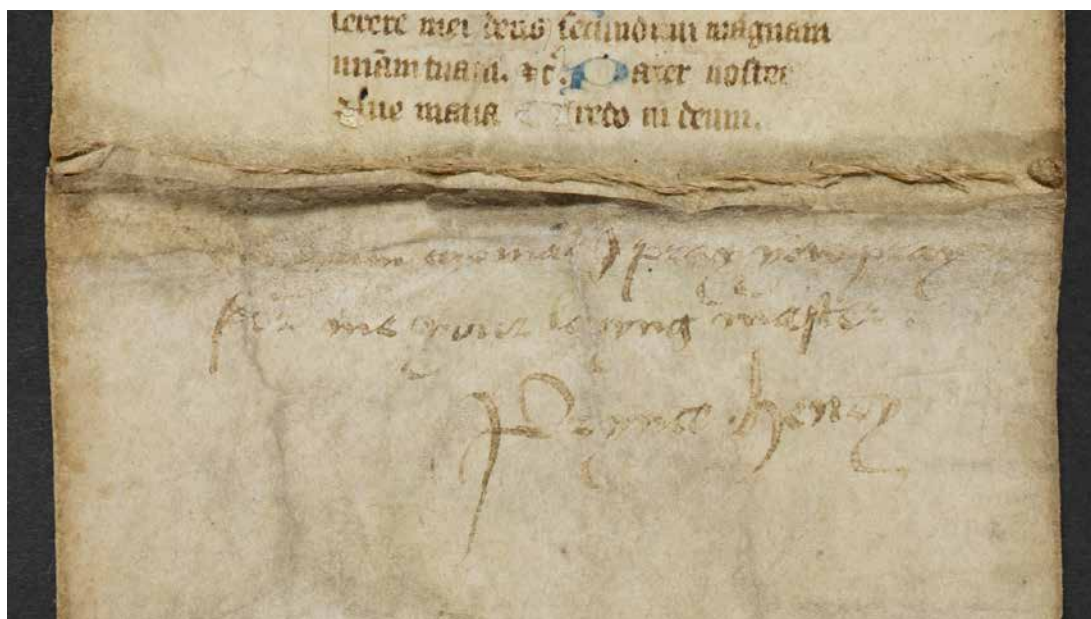 serere mei deus secundum magnam
miam tuam. &c. Pater noster
Aue maria Credo in deum.
thomas I pray yow pray
for me your lovyng master
Prynce Henry